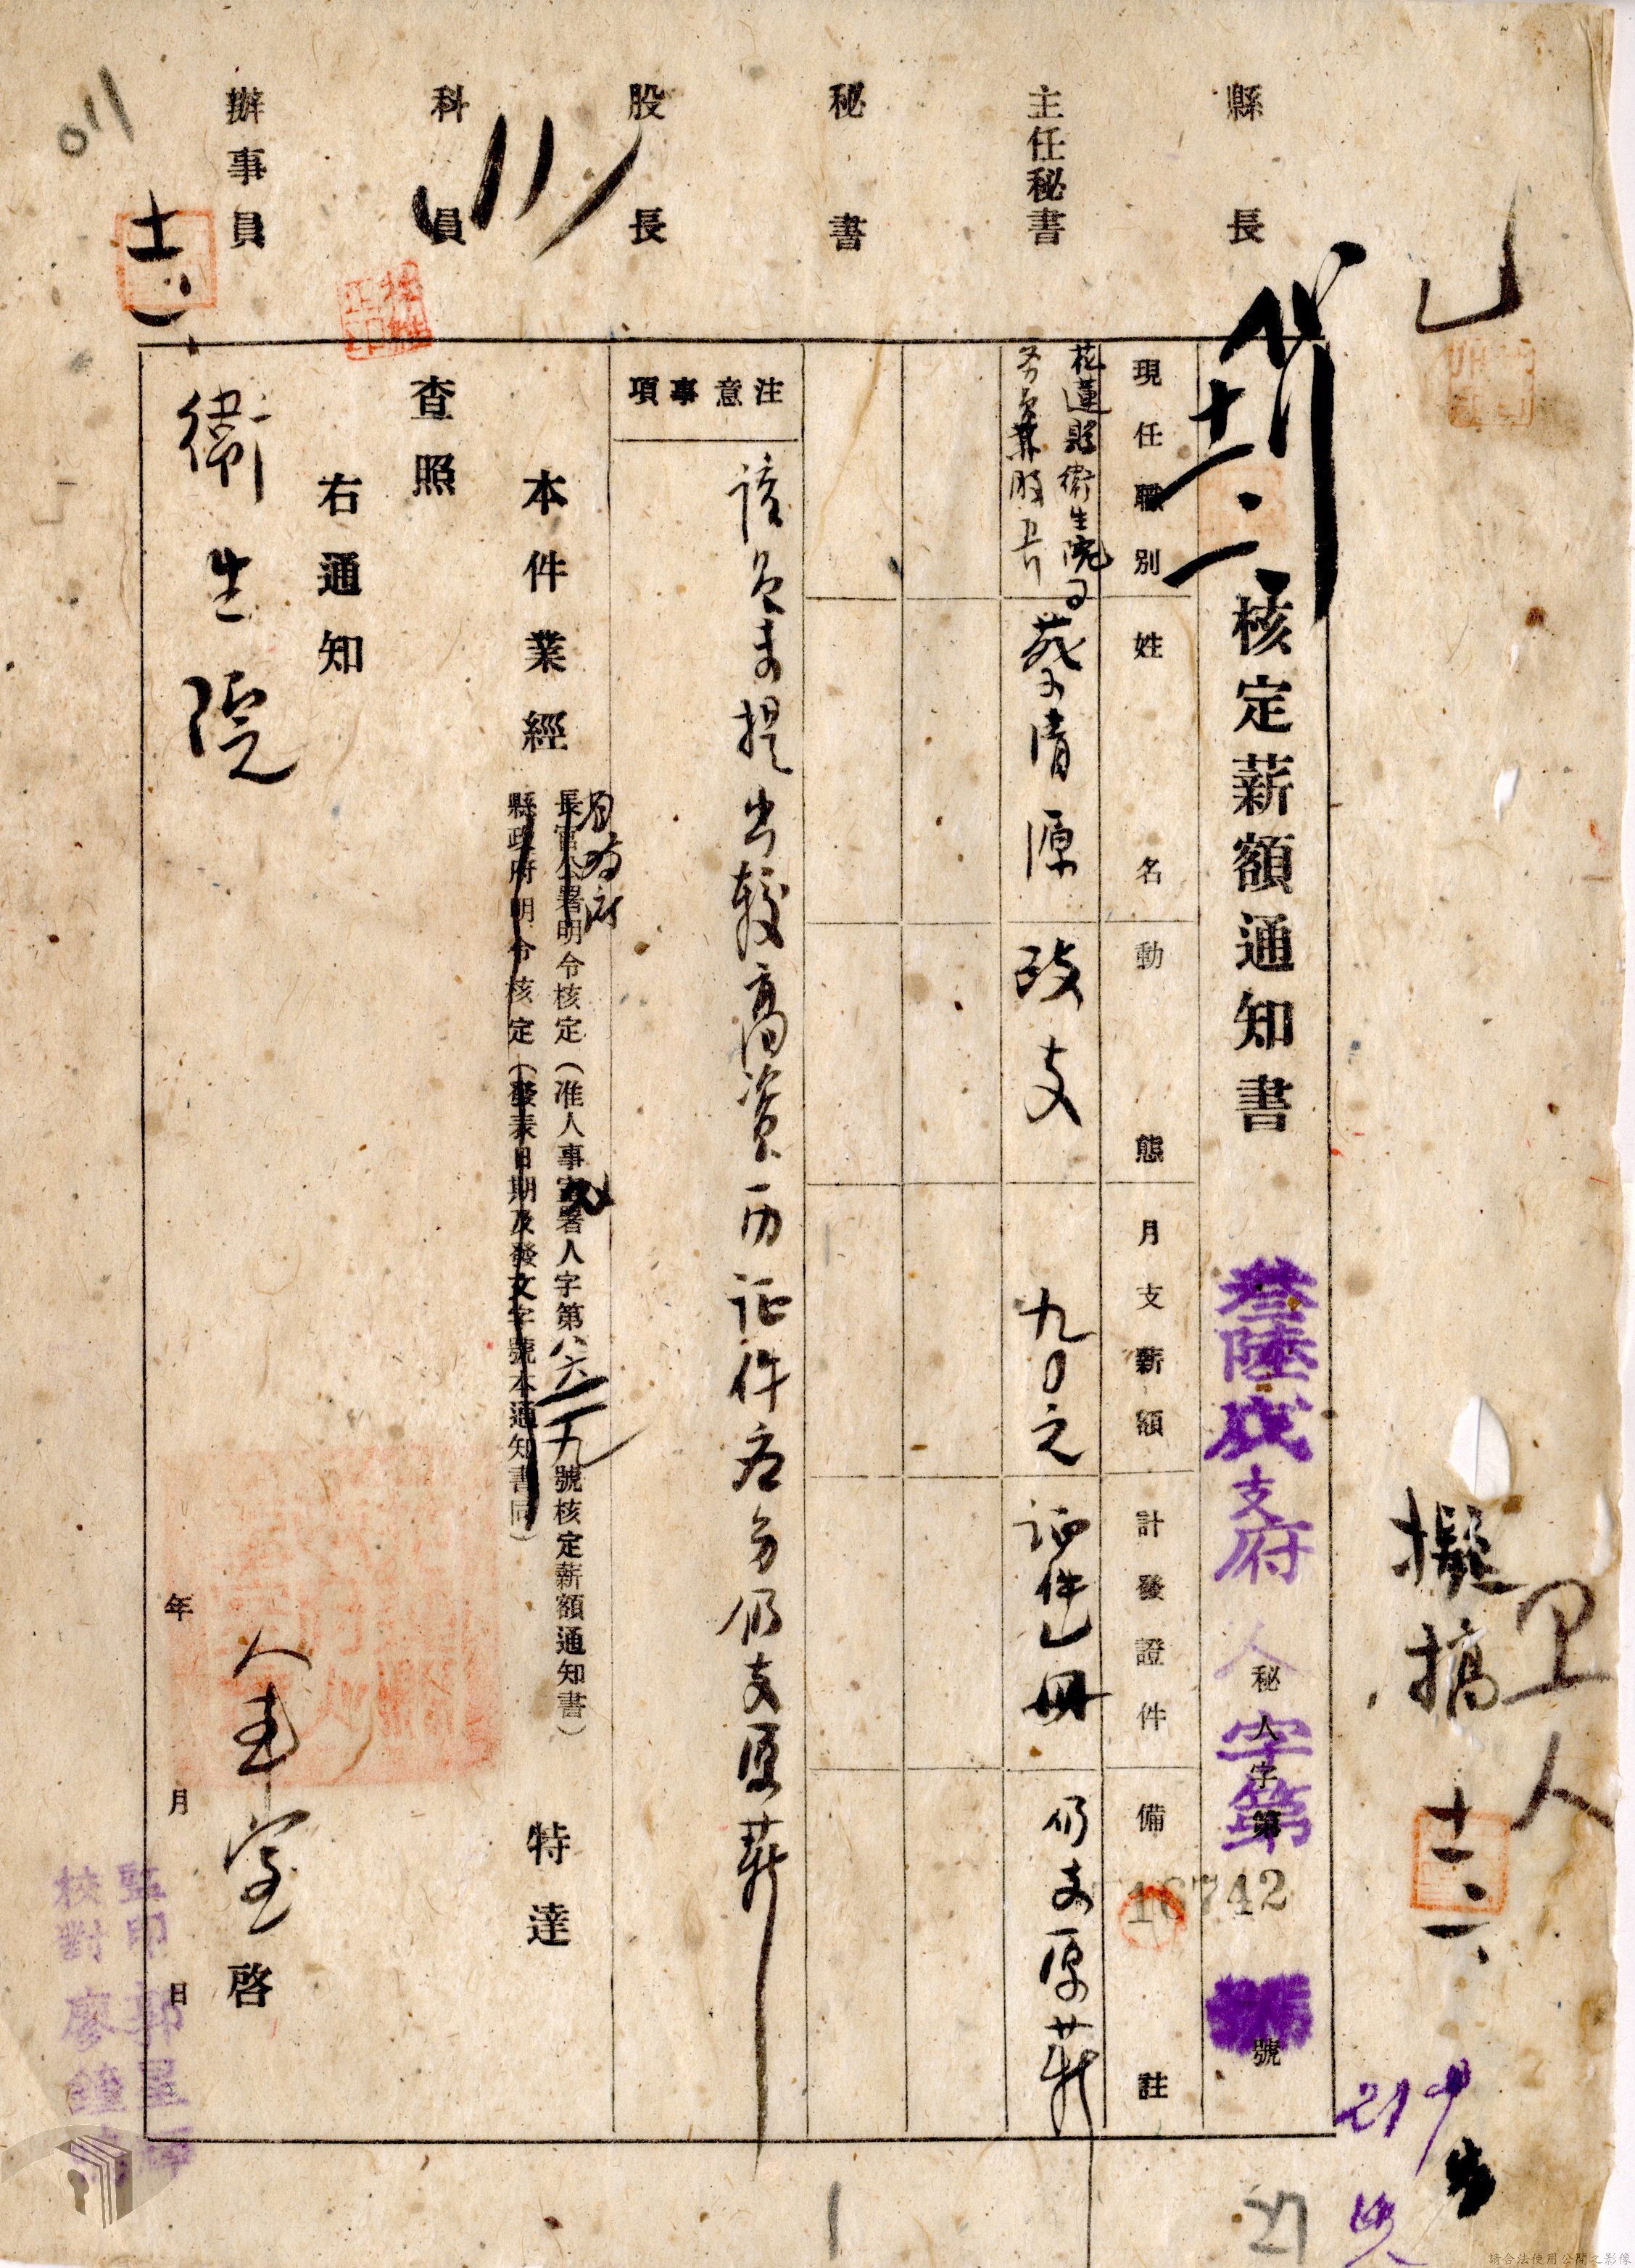 縣長
主任秘書
秘書
股長
科員
辦事員
擬搞
十二、一、
卫人
核定薪額通知書
叁陸戌支府人字第
秘人字第
16742
號
現任職別
姓名
動態
月支薪額
計發證件
備註
花蓮縣衛生院
蔡清源
改支
九〇元
證件乙冊
仍支原薪
注意事項
該員未提出較高資历证件为仍支原薪
本件業經
長官公署明令核定(准人事室署人字第八六一九號核定薪額通知書)
縣政府明令核定(發表日期及發文字號本通知書同)
特達
查照
右通知
衛生院
人事室啓
年月日
監印
校對
011
27
請合法使用公開之影像